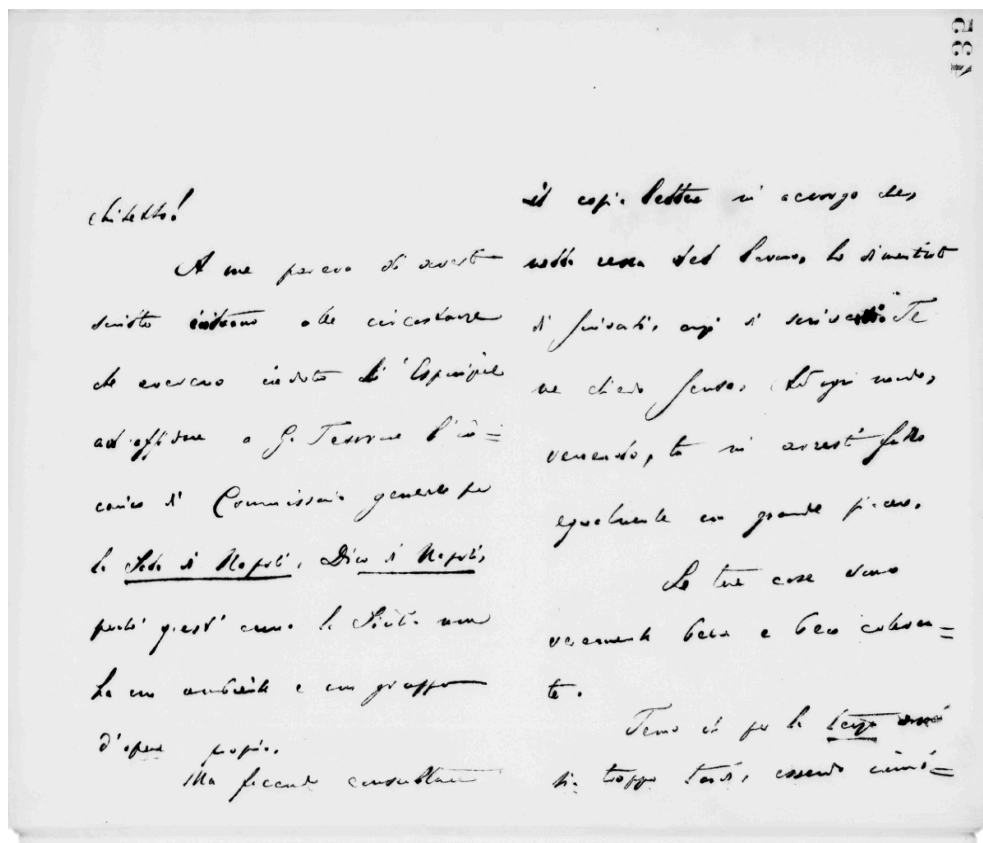 132
chitetto!
A me pareva di averti
scritto intorno alle circostanze
che avevano indotto
ad offrire a G. Tesorone l'in=
carico di Commissario generale per
la Sede di Napoli. Dico di Napoli,
perché quest'anno la Sicilia non
ha un ambiente e un gruppo
d'opere proprio.
Ma facendo consultare
il copia lettere mi accorgo che,
nella ressa del lavoro, ho dimenticato
di
ne chiedo scusa. Ad ogni modo,
venendo, tu mi avresti fatto
egualmente un grande piacere.
Le tue cose vanno
veramente bene e ben collocan=
te.
Temo che per la terza
sia troppo tardi, essendo